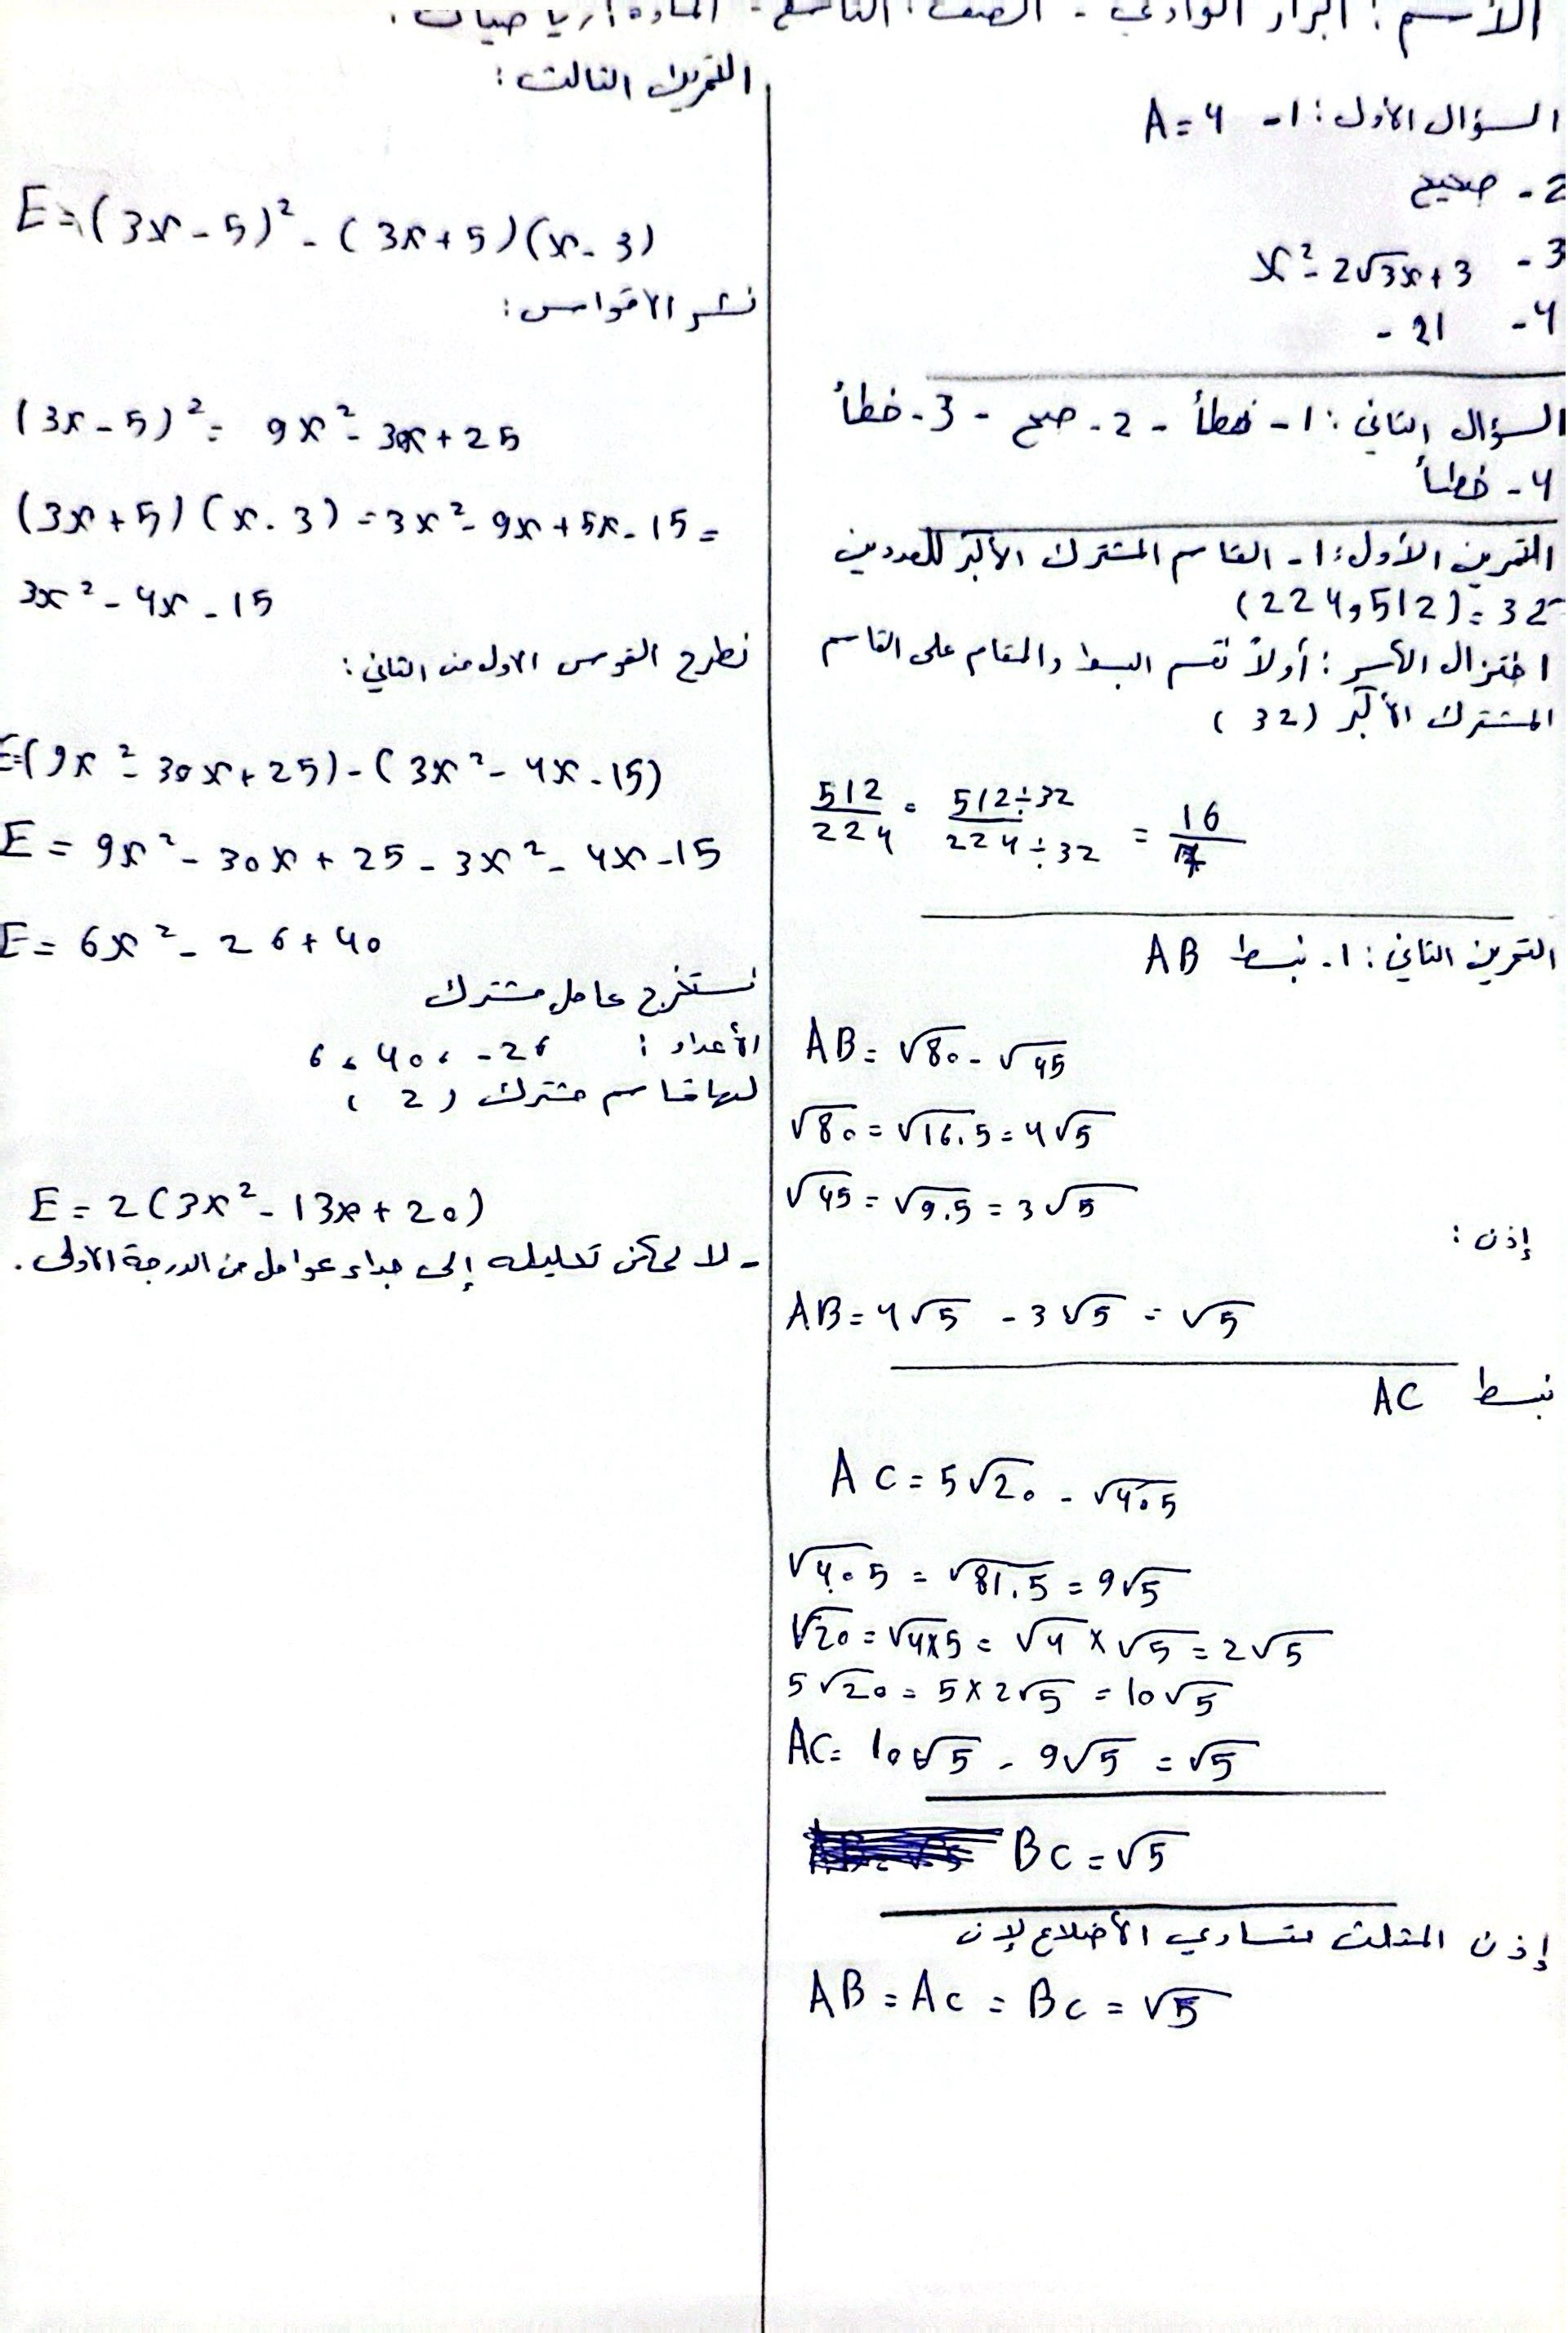 الأسم: ابرار الوادي - الصف: التاسع - المادة: رياضيات.
السؤال الأول: 1- A=4
2- صحيح
3- x²-2√3x+3
4- -21
السؤال الثاني: 1- خطأ - 2- صح - 3- خطأ
4- خطأ
التمرين الأول: 1- القاسم المشترك الأكبر للعددين
(224,512)=32
اختزال الكسر: أولاً نقسم البسط والمقام على القاسم
المشترك الأكبر (32)
512/224 = 512÷32/224÷32 = 16/7
التمرين الثاني: 1. نبسط AB
AB=√80-√45
√80=√16.5=4√5
√45=√9.5=3√5
إذن:
AB=4√5-3√5=√5
نبسط AC
AC=5√20-√405
√405=√81.5=9√5
√20=√4×5=√4×√5=2√5
5√20=5×2√5=10√5
AC=10√5-9√5=√5
BC=√5
إذن المثلث متساوي الأضلاع لإن
AB=AC=BC=√5
التمرين الثالث:
E=(3x-5)²-(3x+5)(x-3)
نشر الاقواس:
(3x-5)²=9x²-30x+25
(3x+5)(x-3)=3x²-9x+5x-15=
3x²-4x-15
نطرح القوس الاول من الثاني:
E=(9x²-30x+25)-(3x²-4x-15)
E=9x²-30x+25-3x²-4x-15
E=6x²-26+40
نستخرج عامل مشترك
الأعداد: 6، 40، -26
لها قاسم مشترك (2)
E=2(3x²-13x+20)
- لا يمكن تحليله إلى جداء عوامل من الدرجة الاولى.